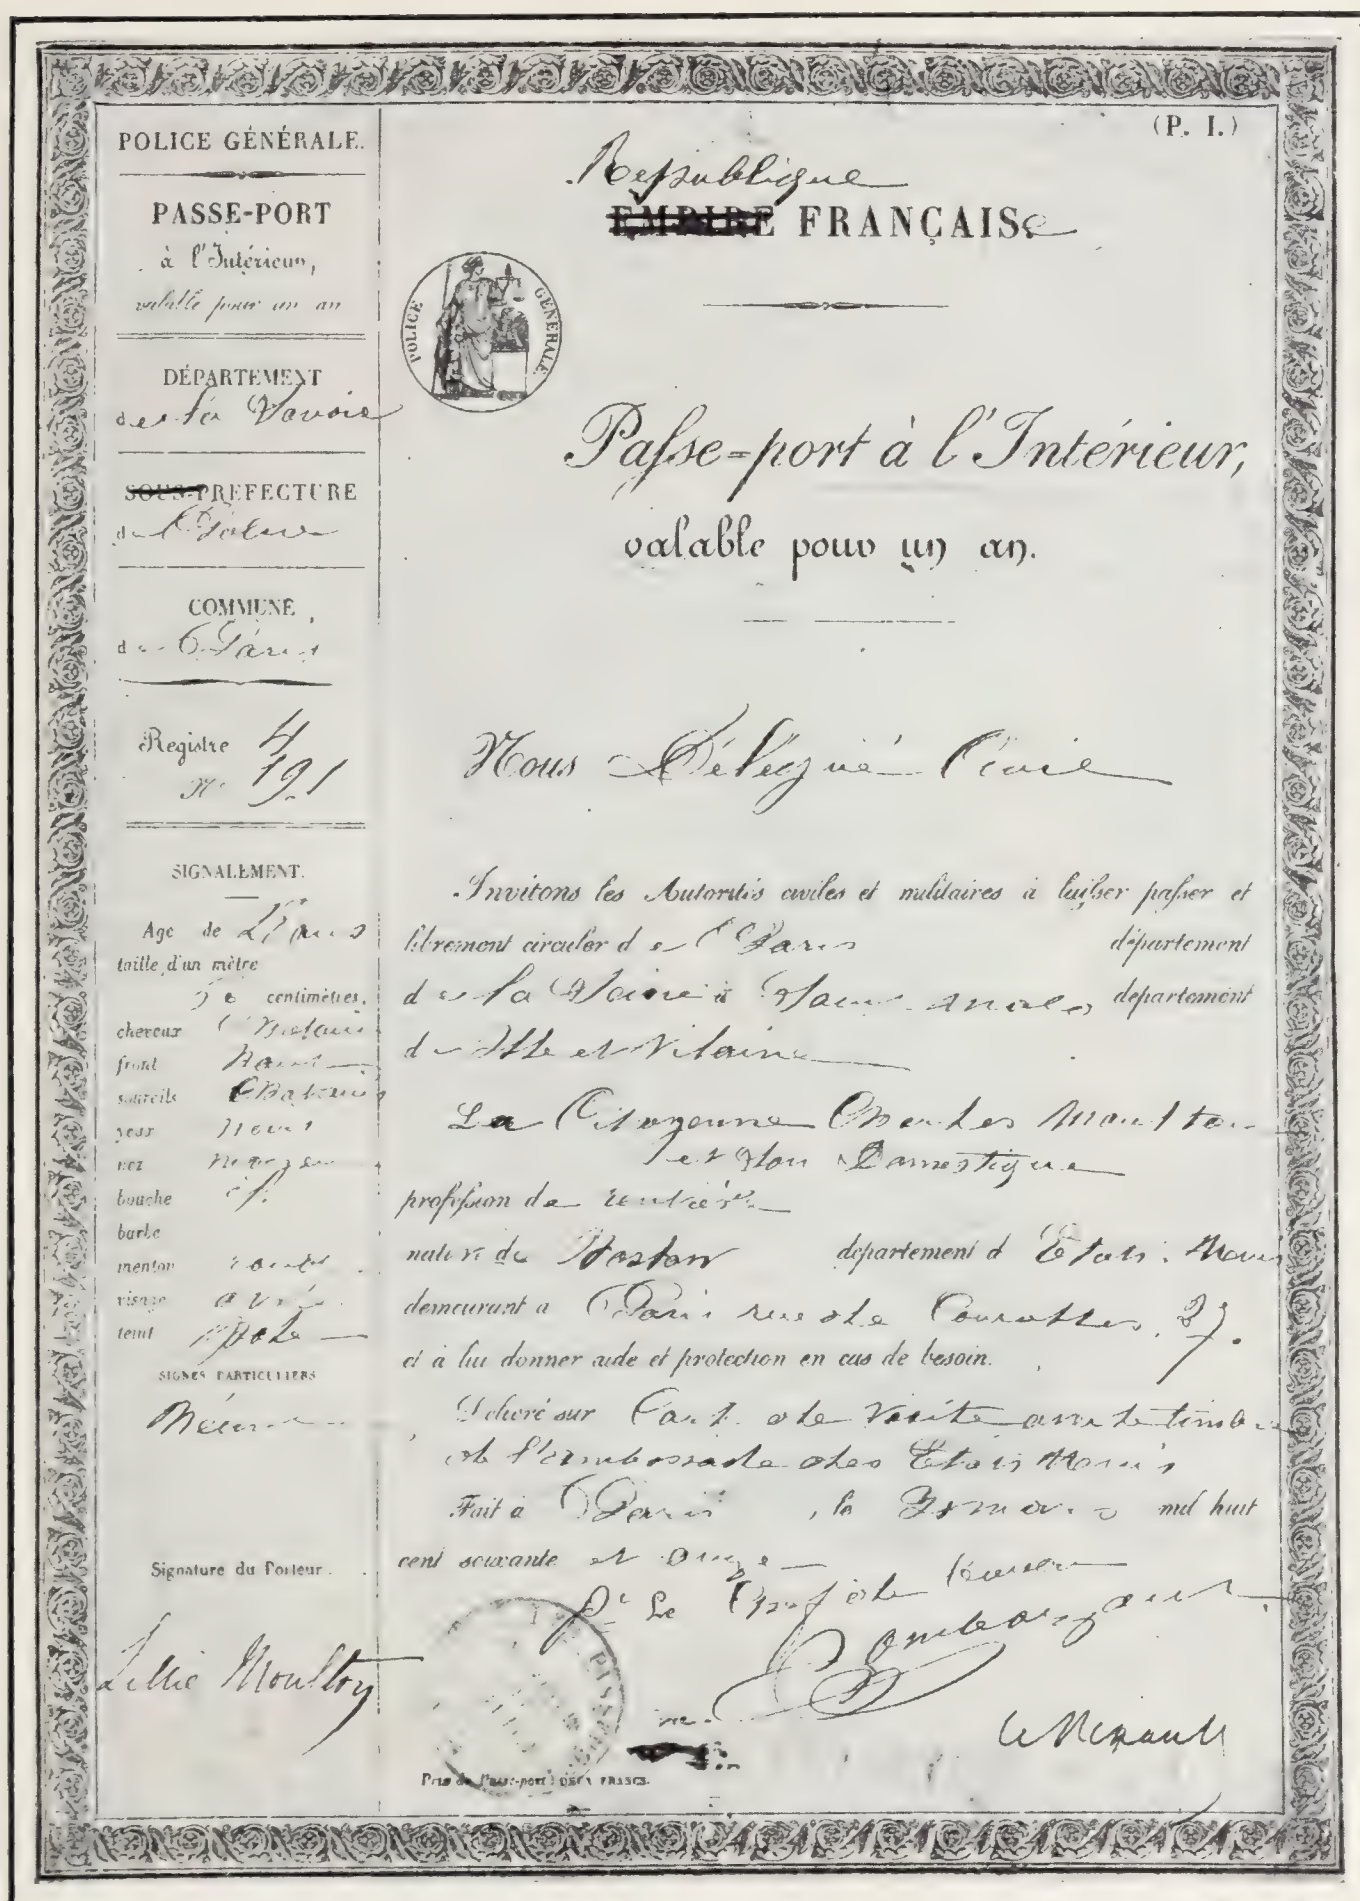 POLICE GÉNÉRALE.
PASSE-PORT
à l'Intérieur,
valable pour un an
DÉPARTEMENT
de la
SOUS-PREFECTURE
de
COMMUNE
de Paris
Registre 4
N° 191
SIGNALEMENT.
Age de ans
taille d'un mètre
centimètres.
cheveux
front haut
sourcils Chatains
yeux
nez moyen
bouche
barbe
menton rond
visage
teint
SIGNES PARTICULIERS
Signature du Porteur.
Lillie Moulton
(P. I.)
Republique
EMPIRE FRANÇAISe
POLICE GÉNÉRALE
Passe-port à l'Intérieur,
valable pour un an.
Nous Délégué Civil
Invitons les Autorités civiles et militaires à laisser passer et
librement circuler de Paris département
de la Seine à département
de Ille et Vilaine
La Citoyenne Charles Moulton
et Son Domestique
profession de
natif de Boston département d Etats
demeurant a Paris rue de Courcelles, 27.
et à lui donner aide et protection en cas de besoin.
Délivré sur Carte de Visite
de l'ambassade des Etats Unis
Fait à Paris, le mars mil huit
cent soixante et onze
Pr Le Chef de
Prix du Passe-port: DEUX FRANCS.